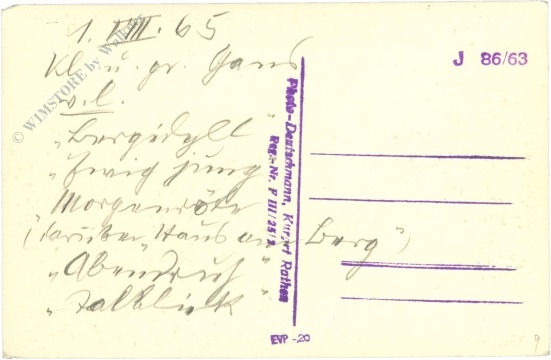 1. VIII. 65
Kl. u. gr. Gans
v. l.
"Bergidyll"
"Ewig jung"
"Morgenröte"
(darüber "Haus am Berg")
"Abendruh"
"Talblick"
© WIMSTORE by Walk
Photo-Deutschmann, Kurort Rathen
Reg.-Nr. P III/25/2
J 86/63
EVP -20
9